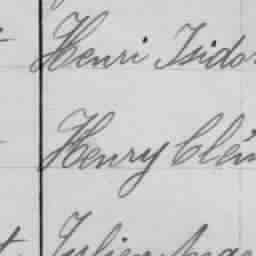 Henri Isido
Henry Clém
Julien